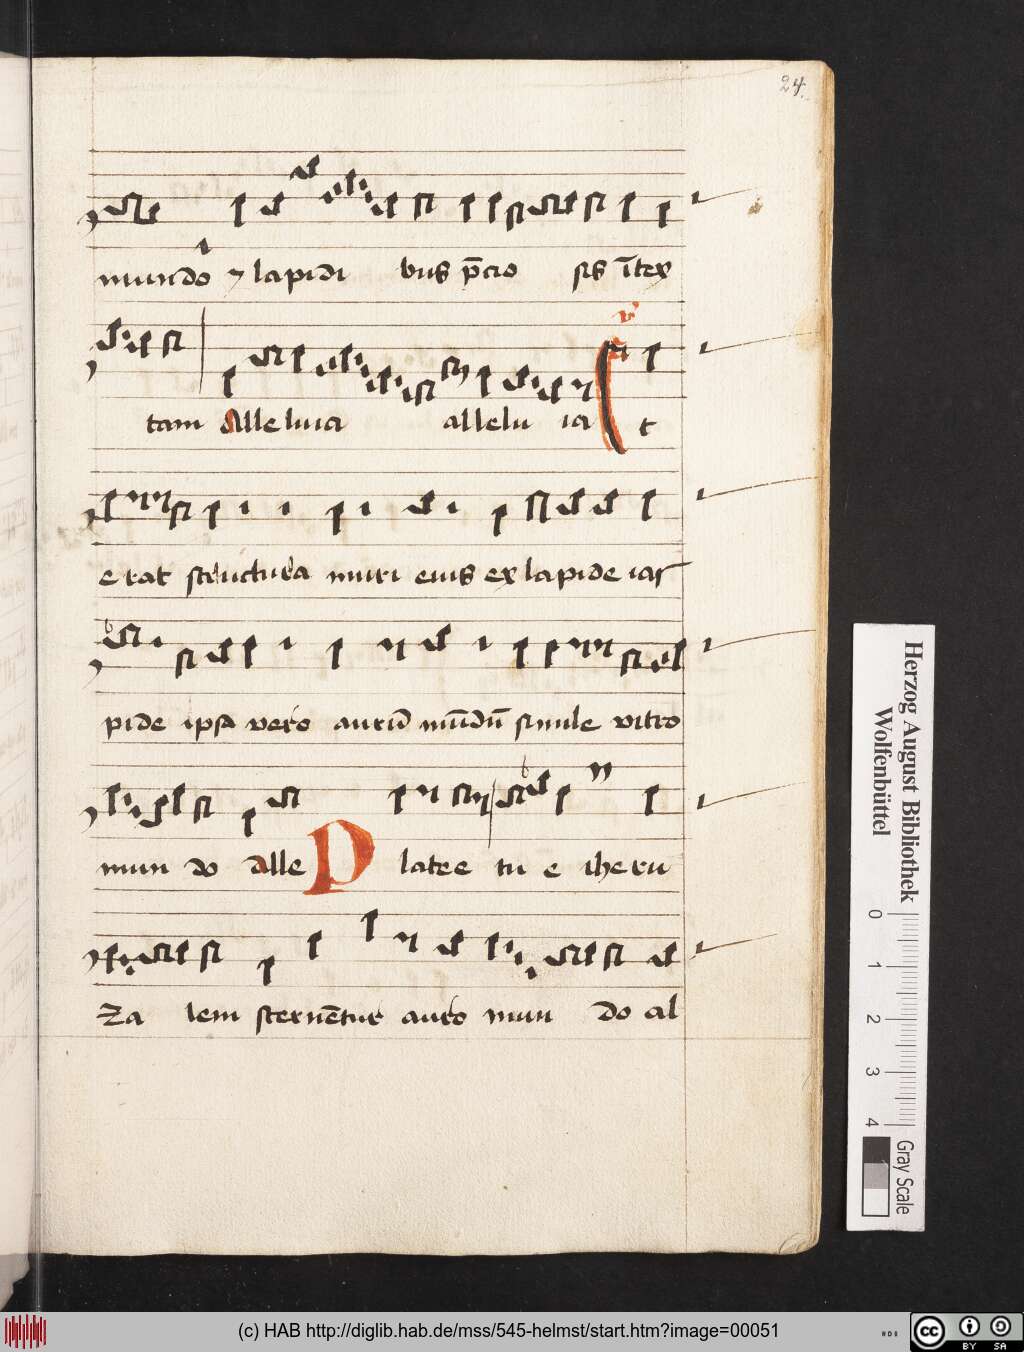 24.
mundo ⁊ lapidi bus p̄cio sis ītex
v̓
tam Alleluia allelu ia E t
erat structura muri eius ex lapide ias
pide ipsa vero aurū mūdū simile vitro
mun do Alle P latee tu e iheru
za lem sternētur auro mun do al
Herzog August Bibliothek
Wolfenbüttel
0 1 2 3 4
Gray Scale
(c) HAB http://diglib.hab.de/mss/545-helmst/start.htm?image=00051
cc BY SA